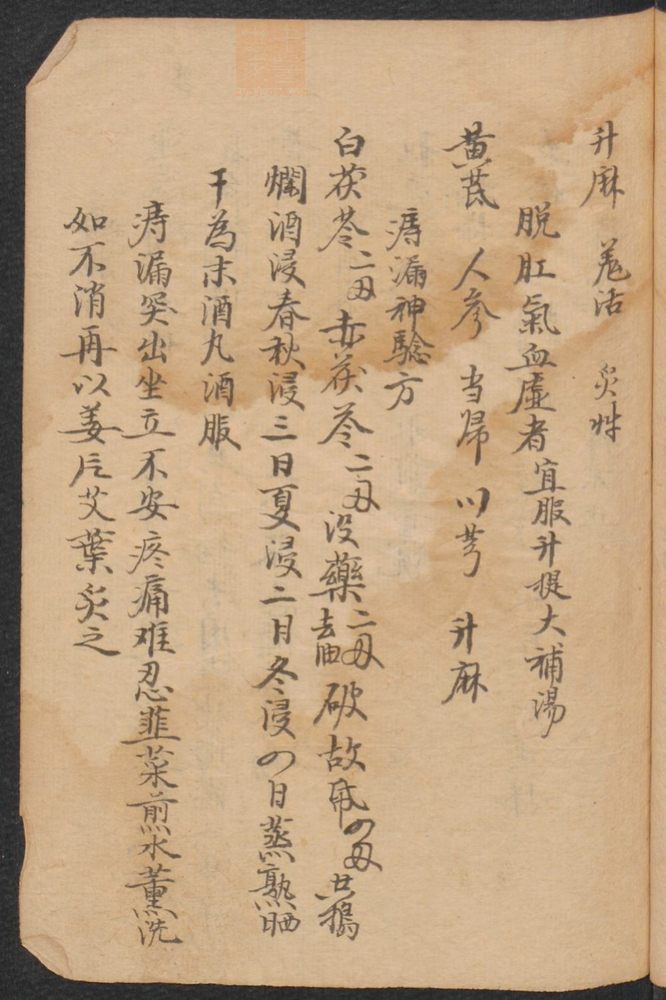 升麻 羗活 炙艸
脱肛氣血虛者宜服升提大補湯
黄芪 人參 当歸 川芎 升麻
痔漏神驗方
白茯苓二両 赤茯苓二両 沒藥二両去油 破故帋四両 共搗
爛酒浸春秋浸三日夏浸二日冬浸四日蒸熟晒
干為末酒丸酒服
痔漏突出坐立不安疼痛难忍韮菜煎水薰洗
如不消再以姜片艾葉炙之